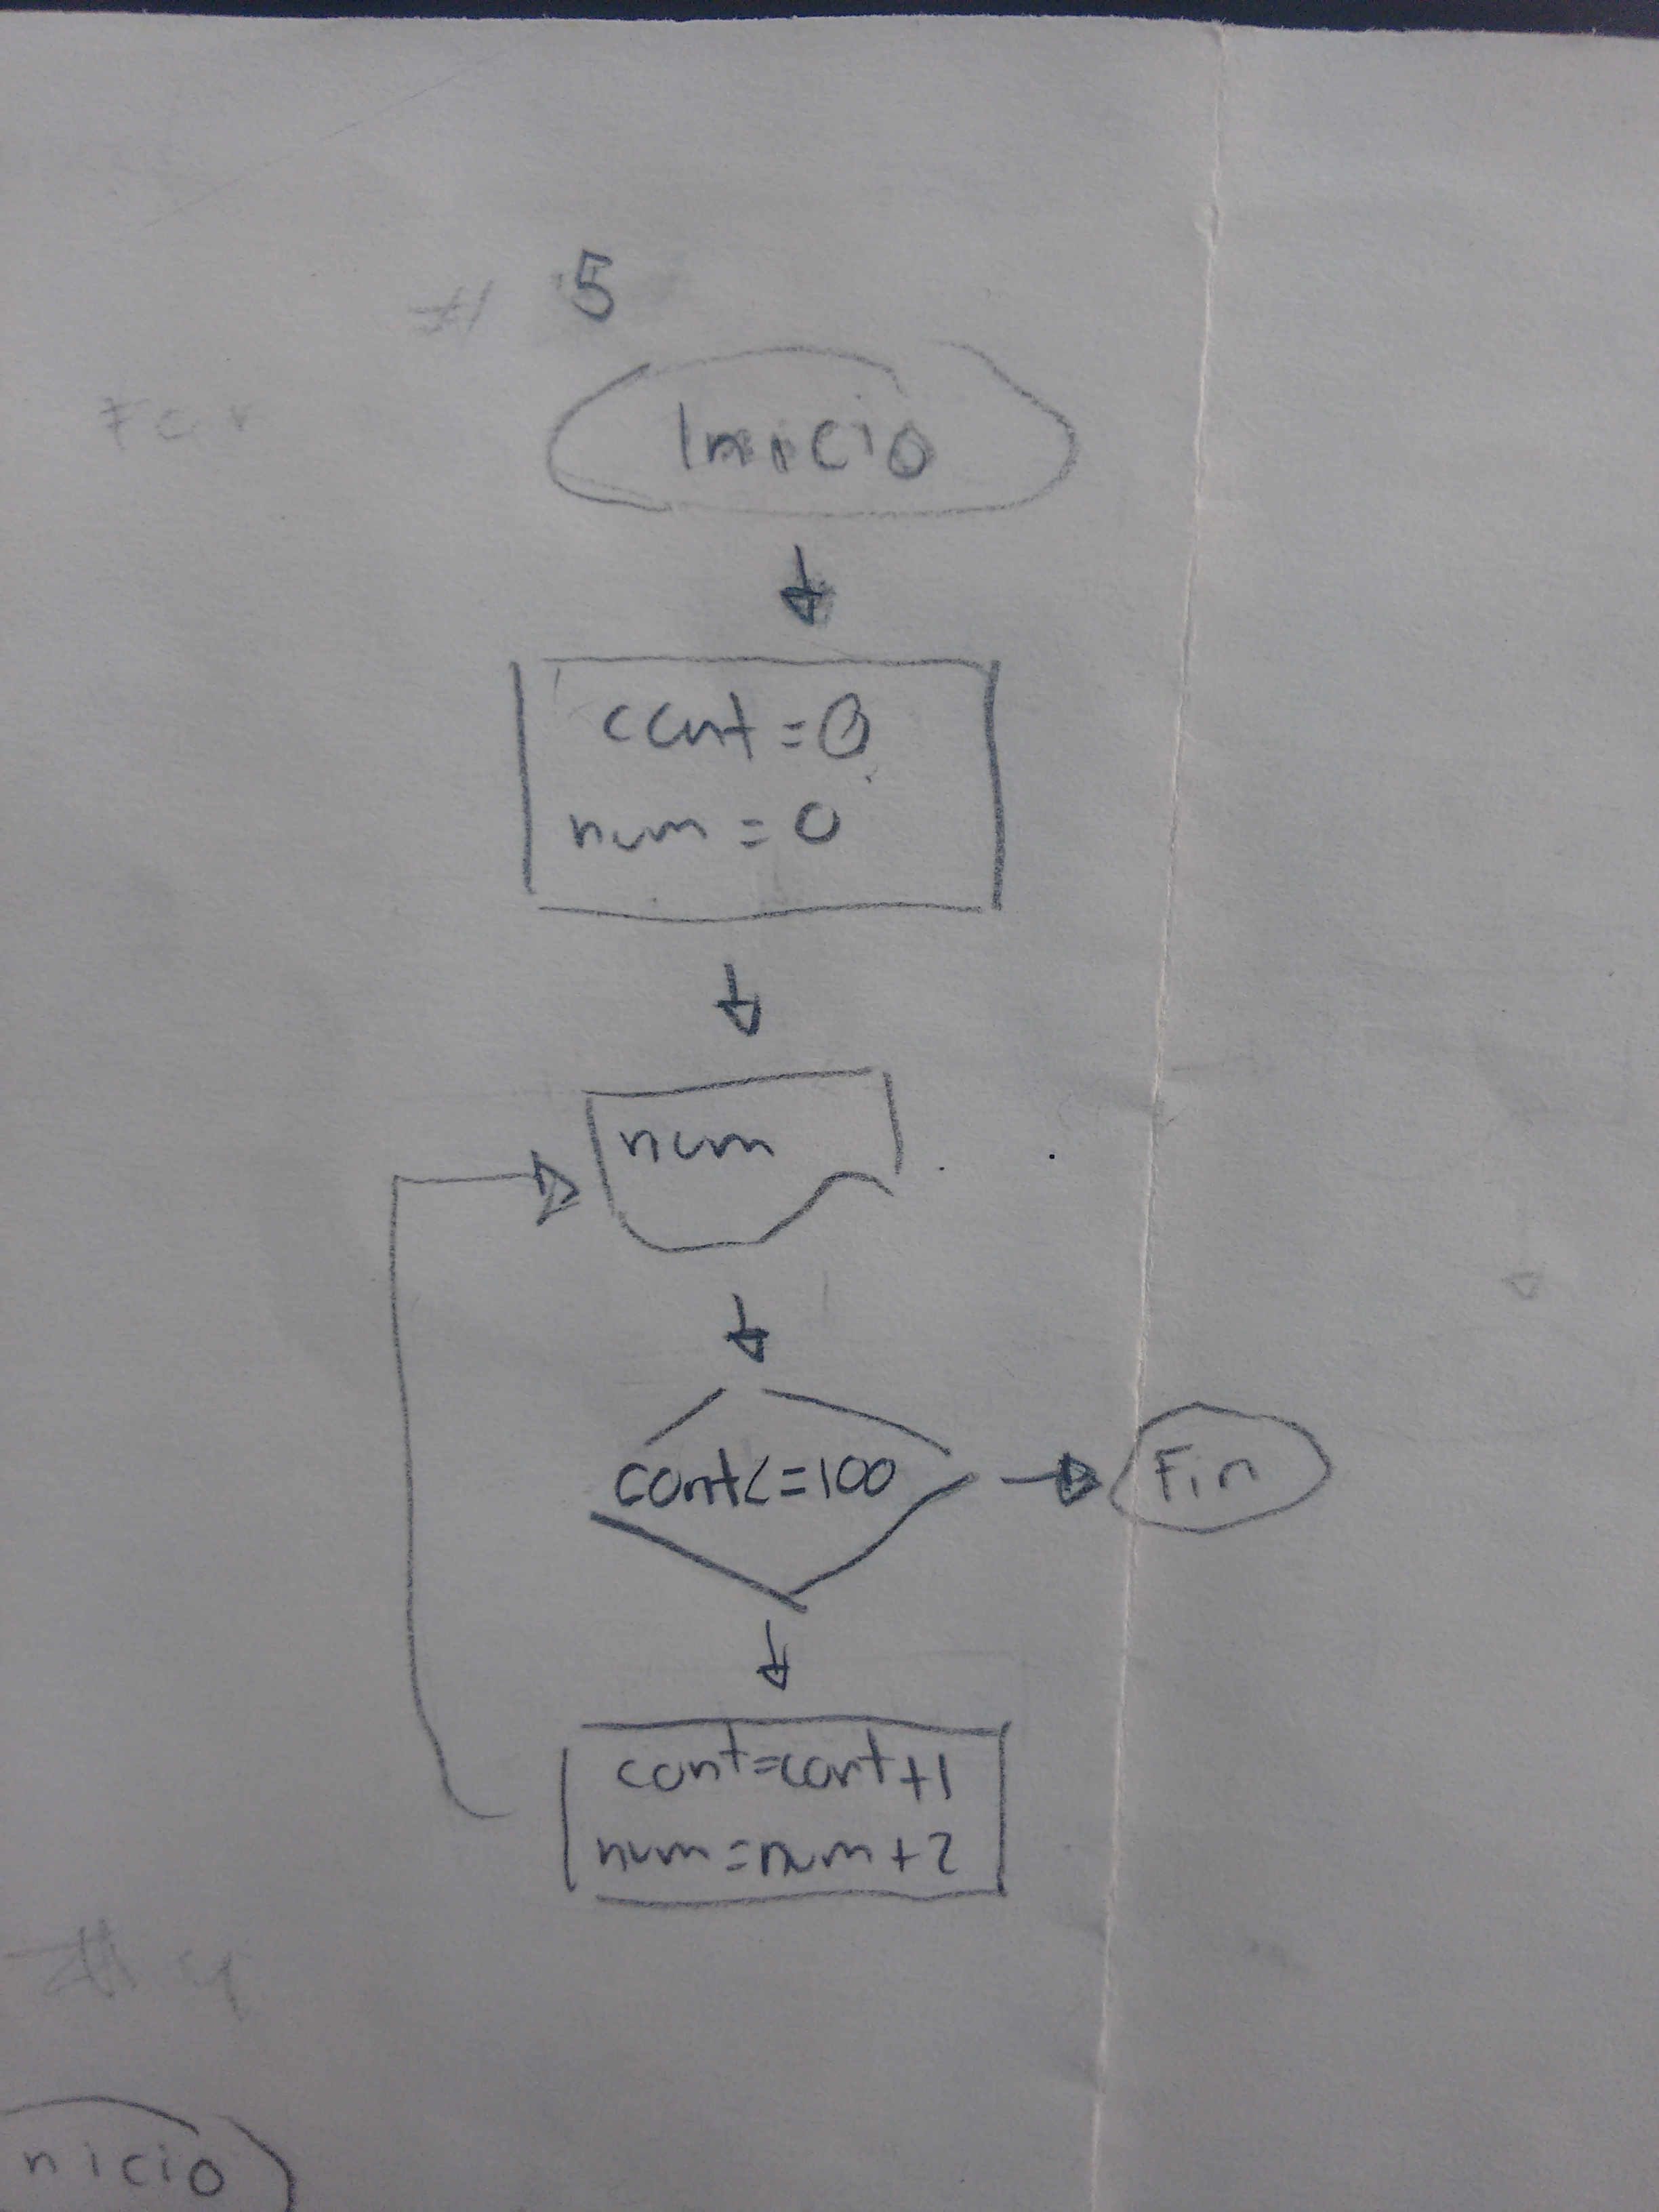 # 5
For
Inicio
cont = 0
num = 0
num
cont<=100
Fin
cont=cont+1
num=num+2
# 4
nicio